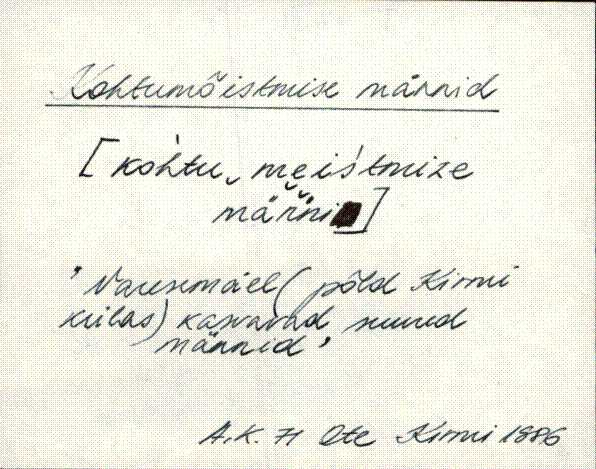 Kohtumõistmise männid
[kohtu‿mei̬śtmize
männi ]
' Varesemäel (põld Kirmi
külas) kasvavad suured
männid '
A.K. 71 Ote Kirmi 1886